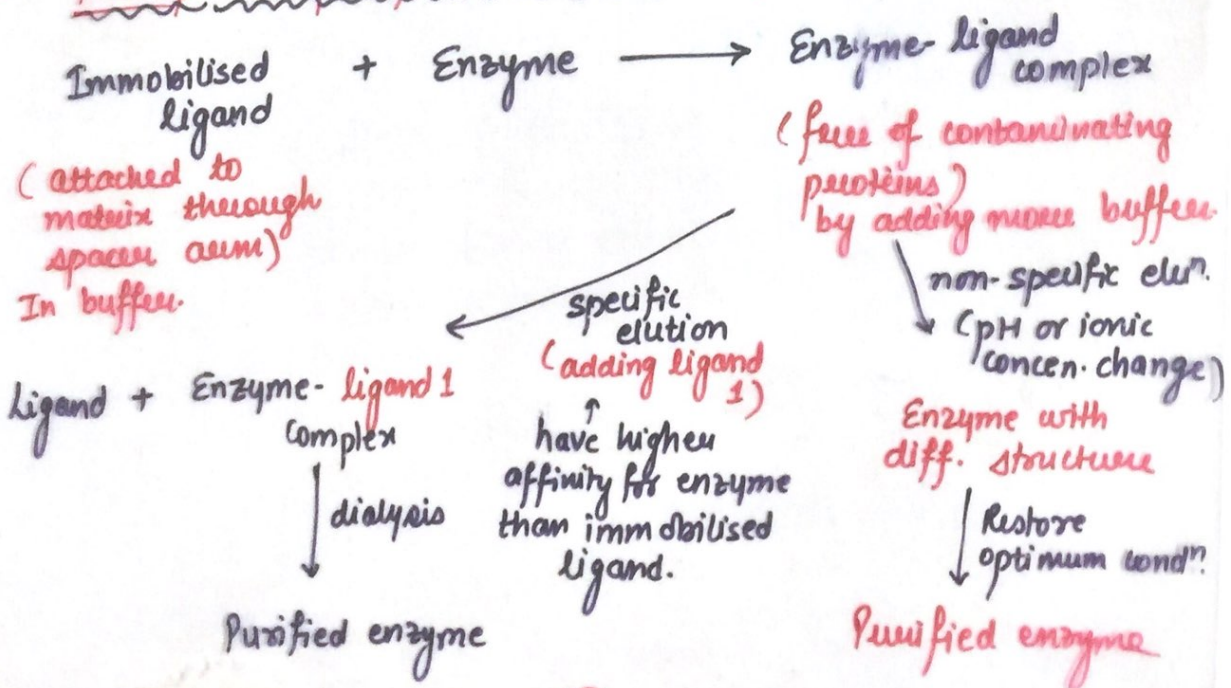 Immobilised + Enzyme → Enzyme-ligand
ligand complex
(attached to
matrix through
spacer arm)
In buffer.
(free of contaminating
proteins)
by adding more buffer.
specific
elution
(adding ligand
1)
↑
have higher
affinity for enzyme
than immobilised
ligand.
non-specific eluⁿ.
(pH or ionic
concen. change)
Ligand + Enzyme-ligand 1
complex
dialysis
Purified enzyme
Enzyme with
diff. structure
Restore
optimum condⁿ.
Purified enzyme